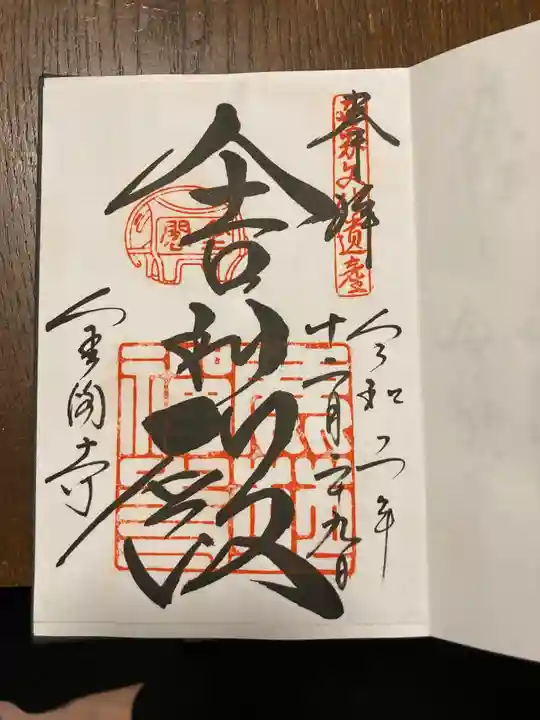 奉拝
世界文化遺産
令和二年
十二月二十九日
舎利殿
金閣寺